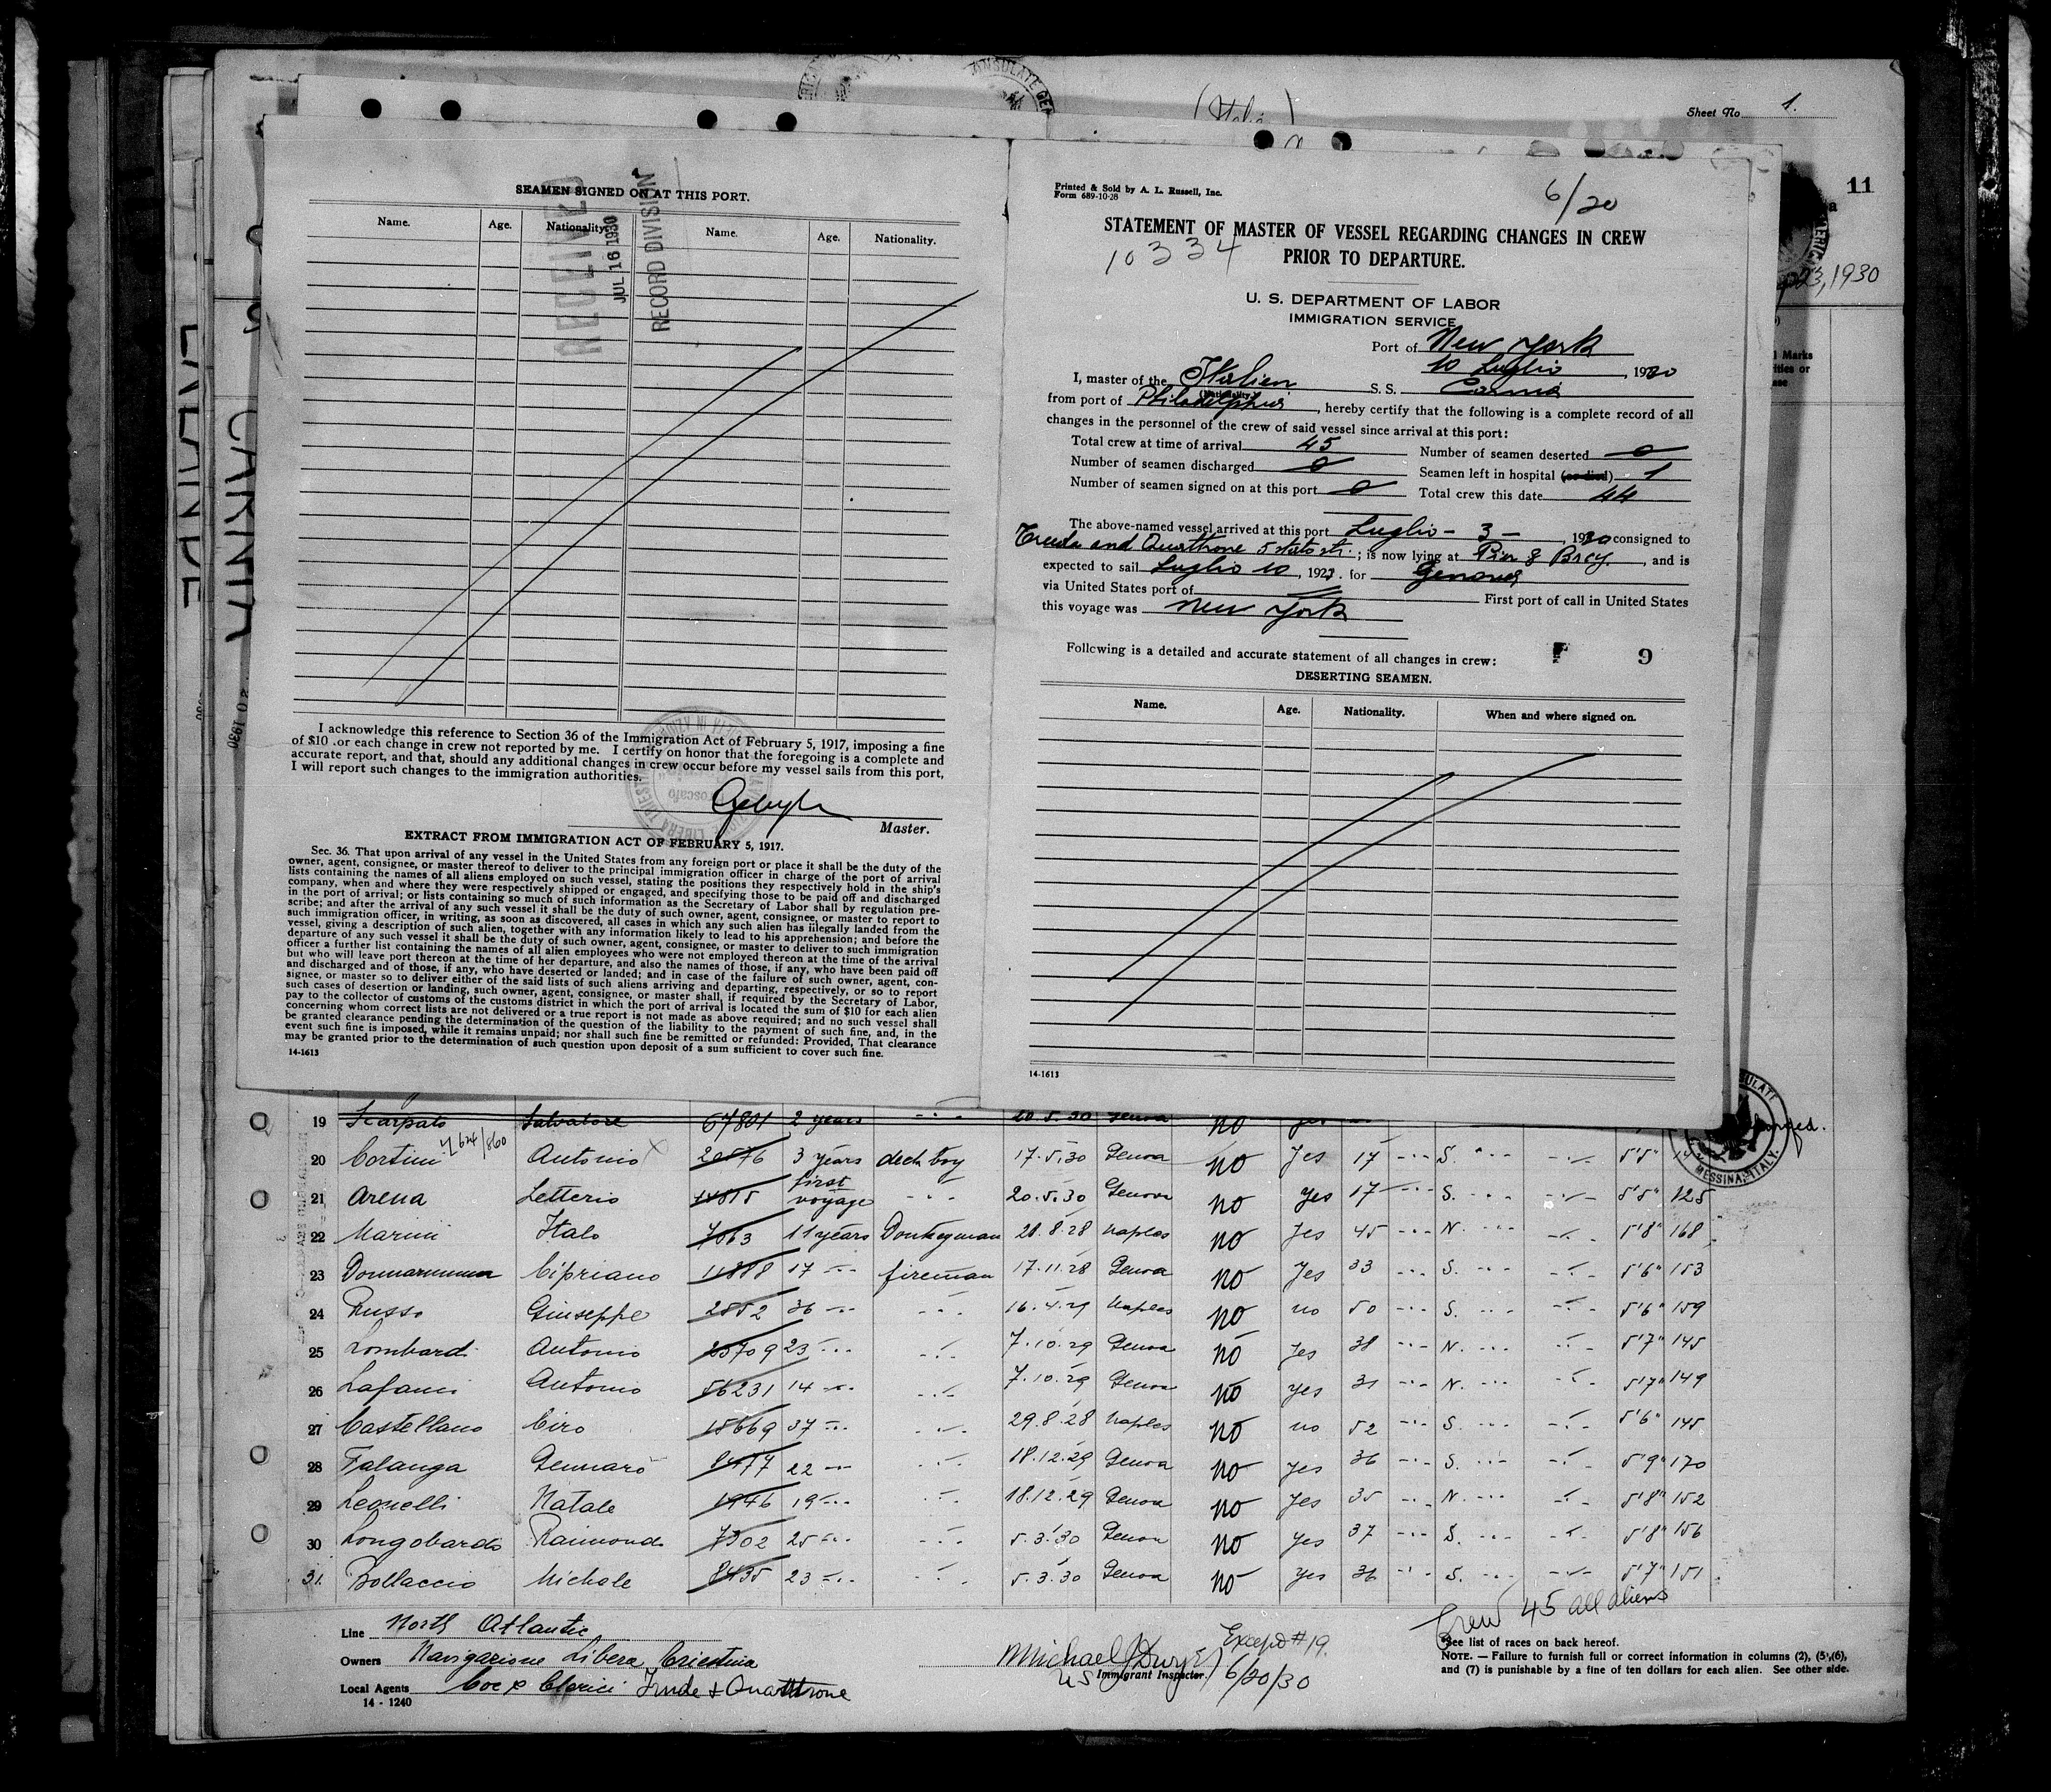 Sheet No 1.
11
23, 1930
SEAMEN SIGNED ON AT THIS PORT.
Name. Age. Nationality. Name. Age. Nationality.
RECEIVED
JUL 16 1930
RECORD DIVISION
I acknowledge this reference to Section 36 of the Immigration Act of February 5, 1917, imposing a fine
of $10 .or each change in crew not reported by me. I certify on honor that the foregoing is a complete and
accurate report, and that, should any additional changes in crew occur before my vessel sails from this port,
I will report such changes to the immigration authorities.
Master.
EXTRACT FROM IMMIGRATION ACT OF FEBRUARY 5, 1917.
Sec. 36. That upon arrival of any vessel in the United States from any foreign port or place it shall be the duty of the
owner, agent, consignee, or master thereof to deliver to the principal immigration officer in charge of the port of arrival
lists containing the names of all aliens employed on such vessel, stating the positions they respectively hold in the ship's
company, when and where they were respectively shipped or engaged, and specifying those to be paid off and discharged
in the port of arrival; or lists containing so much of such information as the Secretary of Labor shall by regulation pre-
scribe; and after the arrival of any such vessel it shall be the duty of such owner, agent, consignee, or master to report to
such immigration officer, in writing, as soon as discovered, all cases in which any such alien has illegally landed from the
vessel, giving a description of such alien, together with any information likely to lead to his apprehension; and before the
departure of any such vessel it shall be the duty of such owner, agent, consignee, or master to deliver to such immigration
officer a further list containing the names of all alien employees who were not employed thereon at the time of the arrival
but who will leave port thereon at the time of her departure, and also the names of those, if any, who have been paid off
and discharged and of those, if any, who have deserted or landed; and in case of the failure of such owner, agent, con-
signee, or master so to deliver either of the said lists of such aliens arriving and departing, respectively, or so to report
such cases of desertion or landing, such owner, agent, consignee, or master shall, if required by the Secretary of Labor,
pay to the collector of customs of the customs district in which the port of arrival is located the sum of $10 for each alien
concerning whom correct lists are not delivered or a true report is not made as above required; and no such vessel shall
be granted clearance pending the determination of the question of the liability to the payment of such fine, and, in the
event such fine is imposed, while it remains unpaid; nor shall such fine be remitted or refunded: Provided, That clearance
may be granted prior to the determination of such question upon deposit of a sum sufficient to cover such fine.
14-1613
Printed & Sold by A. L. Russell, Inc.
Form 689-10-28
6/20
STATEMENT OF MASTER OF VESSEL REGARDING CHANGES IN CREW
10334
PRIOR TO DEPARTURE.
U. S. DEPARTMENT OF LABOR
IMMIGRATION SERVICE
Port of New York
10 Luglio, 1930
I, master of the Italien S. S. Carnia
(Nationality)
from port of Philadelphia, hereby certify that the following is a complete record of all
changes in the personnel of the crew of said vessel since arrival at this port:
Total crew at time of arrival 45 Number of seamen deserted 0
Number of seamen discharged 0 Seamen left in hospital (or died) 1
Number of seamen signed on at this port 0 Total crew this date 44
The above-named vessel arrived at this port Luglio - 3 -, 1930 consigned to
and 5 State st.; is now lying at Pier 8 Bkly, and is
expected to sail Luglio 10, 192 . for Genova
via United States port of First port of call in United States
this voyage was New York
Following is a detailed and accurate statement of all changes in crew: 9
DESERTING SEAMEN.
Name. Age. Nationality. When and where signed on.
14-1613
19 Scarpato Salvatore 67801 2 years 20.5.30 Genoa no yes
20 Cortini Antonio 20576 3 years deck boy 17.5.30 Genoa no yes 17 S. 5'5"
21 Arena Letterio 14815 first voyage 20.5.30 Genoa no yes 17 S. 5'5" 125
22 Marini Italo 7063 11 years Donkeyman 28.8.28 Naples no yes 45 N. 5'8" 168
23 Donnarumma Cipriano 11888 17 fireman 17.11.28 Genoa no yes 33 S. 5'6" 153
24 Russo Giuseppe 2852 36 16.4.29 Naples no no 50 S. 5'6" 159
25 Lombardi Antonio 25709 23 7.10.29 Genoa no yes 38 N. 5'7" 145
26 Lafauci Antonio 56231 14 7.10.29 Genoa no yes 31 N. 5'7" 149
27 Castellano Ciro 15669 37 29.8.28 Naples no no 52 S. 5'6" 145
28 Falanga Gennaro 8477 22 18.12.29 Genoa no yes 36 S. 5'9" 170
29 Leonelli Natale 1946 19 18.12.29 Genoa no yes 35 N. 5'8" 152
30 Longobardo Raimondo 7302 25 5.3.30 Genoa no yes 37 S. 5'8" 156
31. Bollaccio Michele 8435 23 5.3.30 Genoa no yes 36 S. 5'7" 151
MESSINA, ITALY.
Crew 45 all aliens
Line North Atlantic
Owners Navigazione Libera Triestina
Local Agents Coe & Clerici
14 - 1240
Except #19.
Michael J Dwyer
US Immigrant Inspector. 6/20/30
*See list of races on back hereof.
NOTE. — Failure to furnish full or correct information in columns (2), (5), (6),
and (7) is punishable by a fine of ten dollars for each alien. See other side.
CARNIA